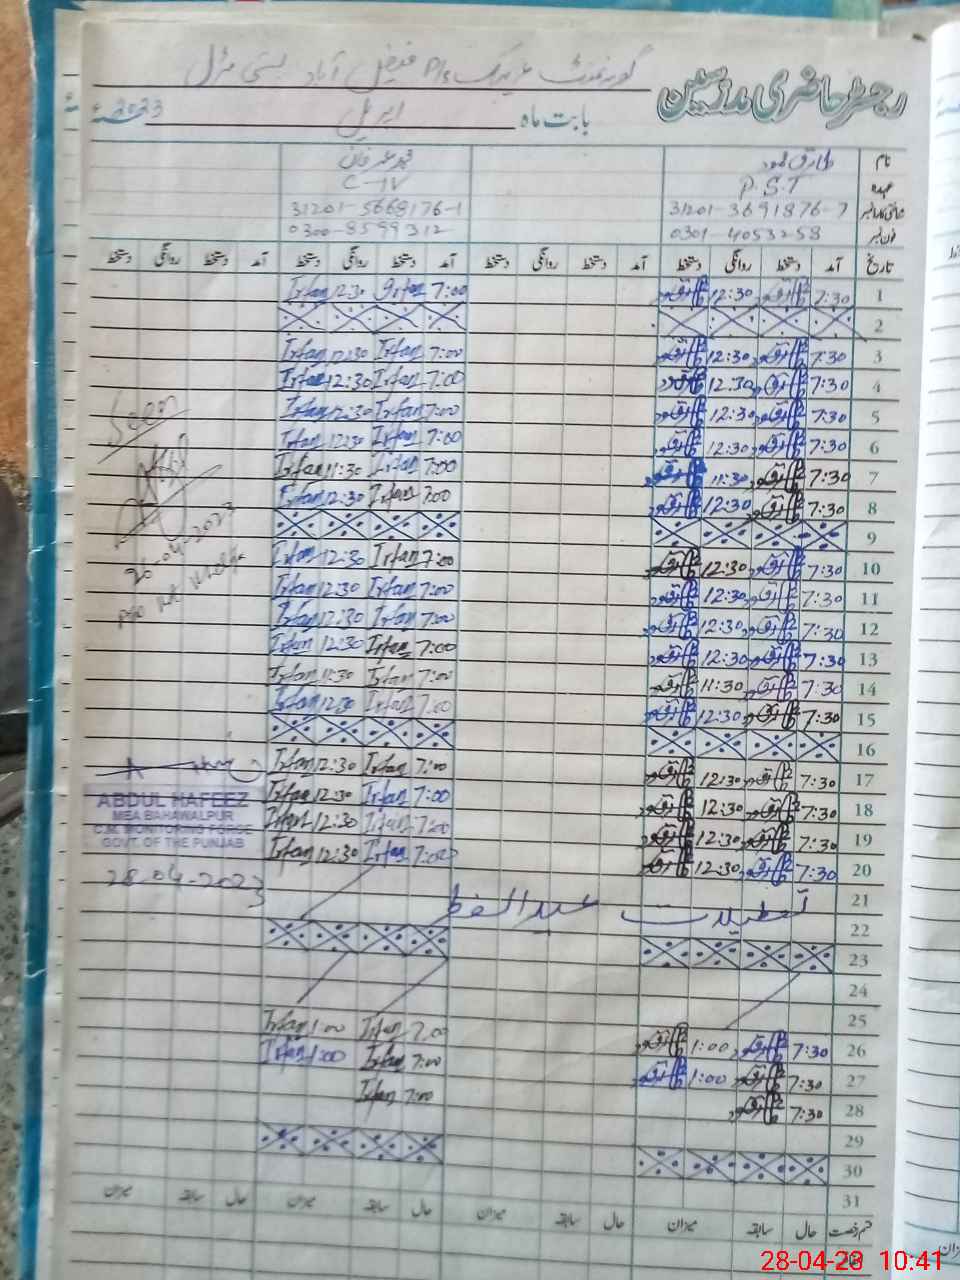 رجسٹر حاضری مدرسین
گورنمنٹ P/S فیض آباد بستی
بابت ماہ اپریل 2023ء
نام طارق محمود محمد عرفان
عہدہ P.S.T C-IV
شناختی کارڈ نمبر 31201-3691876-7 31201-5668176-1
فون نمبر 0301-4053258 0300-8599312
تاریخ آمد دستخط روانگی دستخط آمد دستخط روانگی دستخط آمد دستخط روانگی دستخط آمد دستخط روانگی دستخط
1 7:30 طارق 12:30 طارق 7:00 Irfan 12:30 Irfan
2
3 7:30 طارق 12:30 طارق 7:00 Irfan 12:30 Irfan
4 7:30 طارق 12:30 طارق 7:00 Irfan 12:30 Irfan
5 7:30 طارق 12:30 طارق 7:00 Irfan 12:30 Irfan
6 7:30 طارق 12:30 طارق 7:00 Irfan 12:30 Irfan
7 7:30 طارق 11:30 طارق 7:00 Irfan 11:30 Irfan
8 7:30 طارق 12:30 طارق 7:00 Irfan 12:30 Irfan
9
10 7:30 طارق 12:30 طارق 7:00 Irfan 12:30 Irfan
11 7:30 طارق 12:30 طارق 7:00 Irfan 12:30 Irfan
12 7:30 طارق 12:30 طارق 7:00 Irfan 12:30 Irfan
13 7:30 طارق 12:30 طارق 7:00 Irfan 12:30 Irfan
14 7:30 طارق 11:30 طارق 7:00 Irfan 11:30 Irfan
15 7:30 طارق 12:30 طارق 7:00 Irfan 12:30 Irfan
16
17 7:30 طارق 12:30 طارق 7:00 Irfan 12:30 Irfan
18 7:30 طارق 12:30 طارق 7:00 Irfan 12:30 Irfan
19 7:30 طارق 12:30 طارق 7:00 Irfan 12:30 Irfan
20 7:30 طارق 12:30 طارق 7:00 Irfan 12:30 Irfan
21 تعطیلات عید الفطر
22
23
24
25
26 7:30 طارق 1:00 طارق 7:00 Irfan 1:00 Irfan
27 7:30 طارق 1:00 طارق 7:00 Irfan 1:00 Irfan
28 7:30 طارق 7:00 Irfan
29
30
31
قسم رخصت حال سابقہ میزان حال سابقہ میزان حال سابقہ میزان حال سابقہ میزان
Seen
26-04-2023
ABDUL HAFEEZ
MEA BAHAWALPUR
C.M. MONITORING FORCE
GOVT. OF THE PUNJAB
28-04-2023
28-04-23 10:41